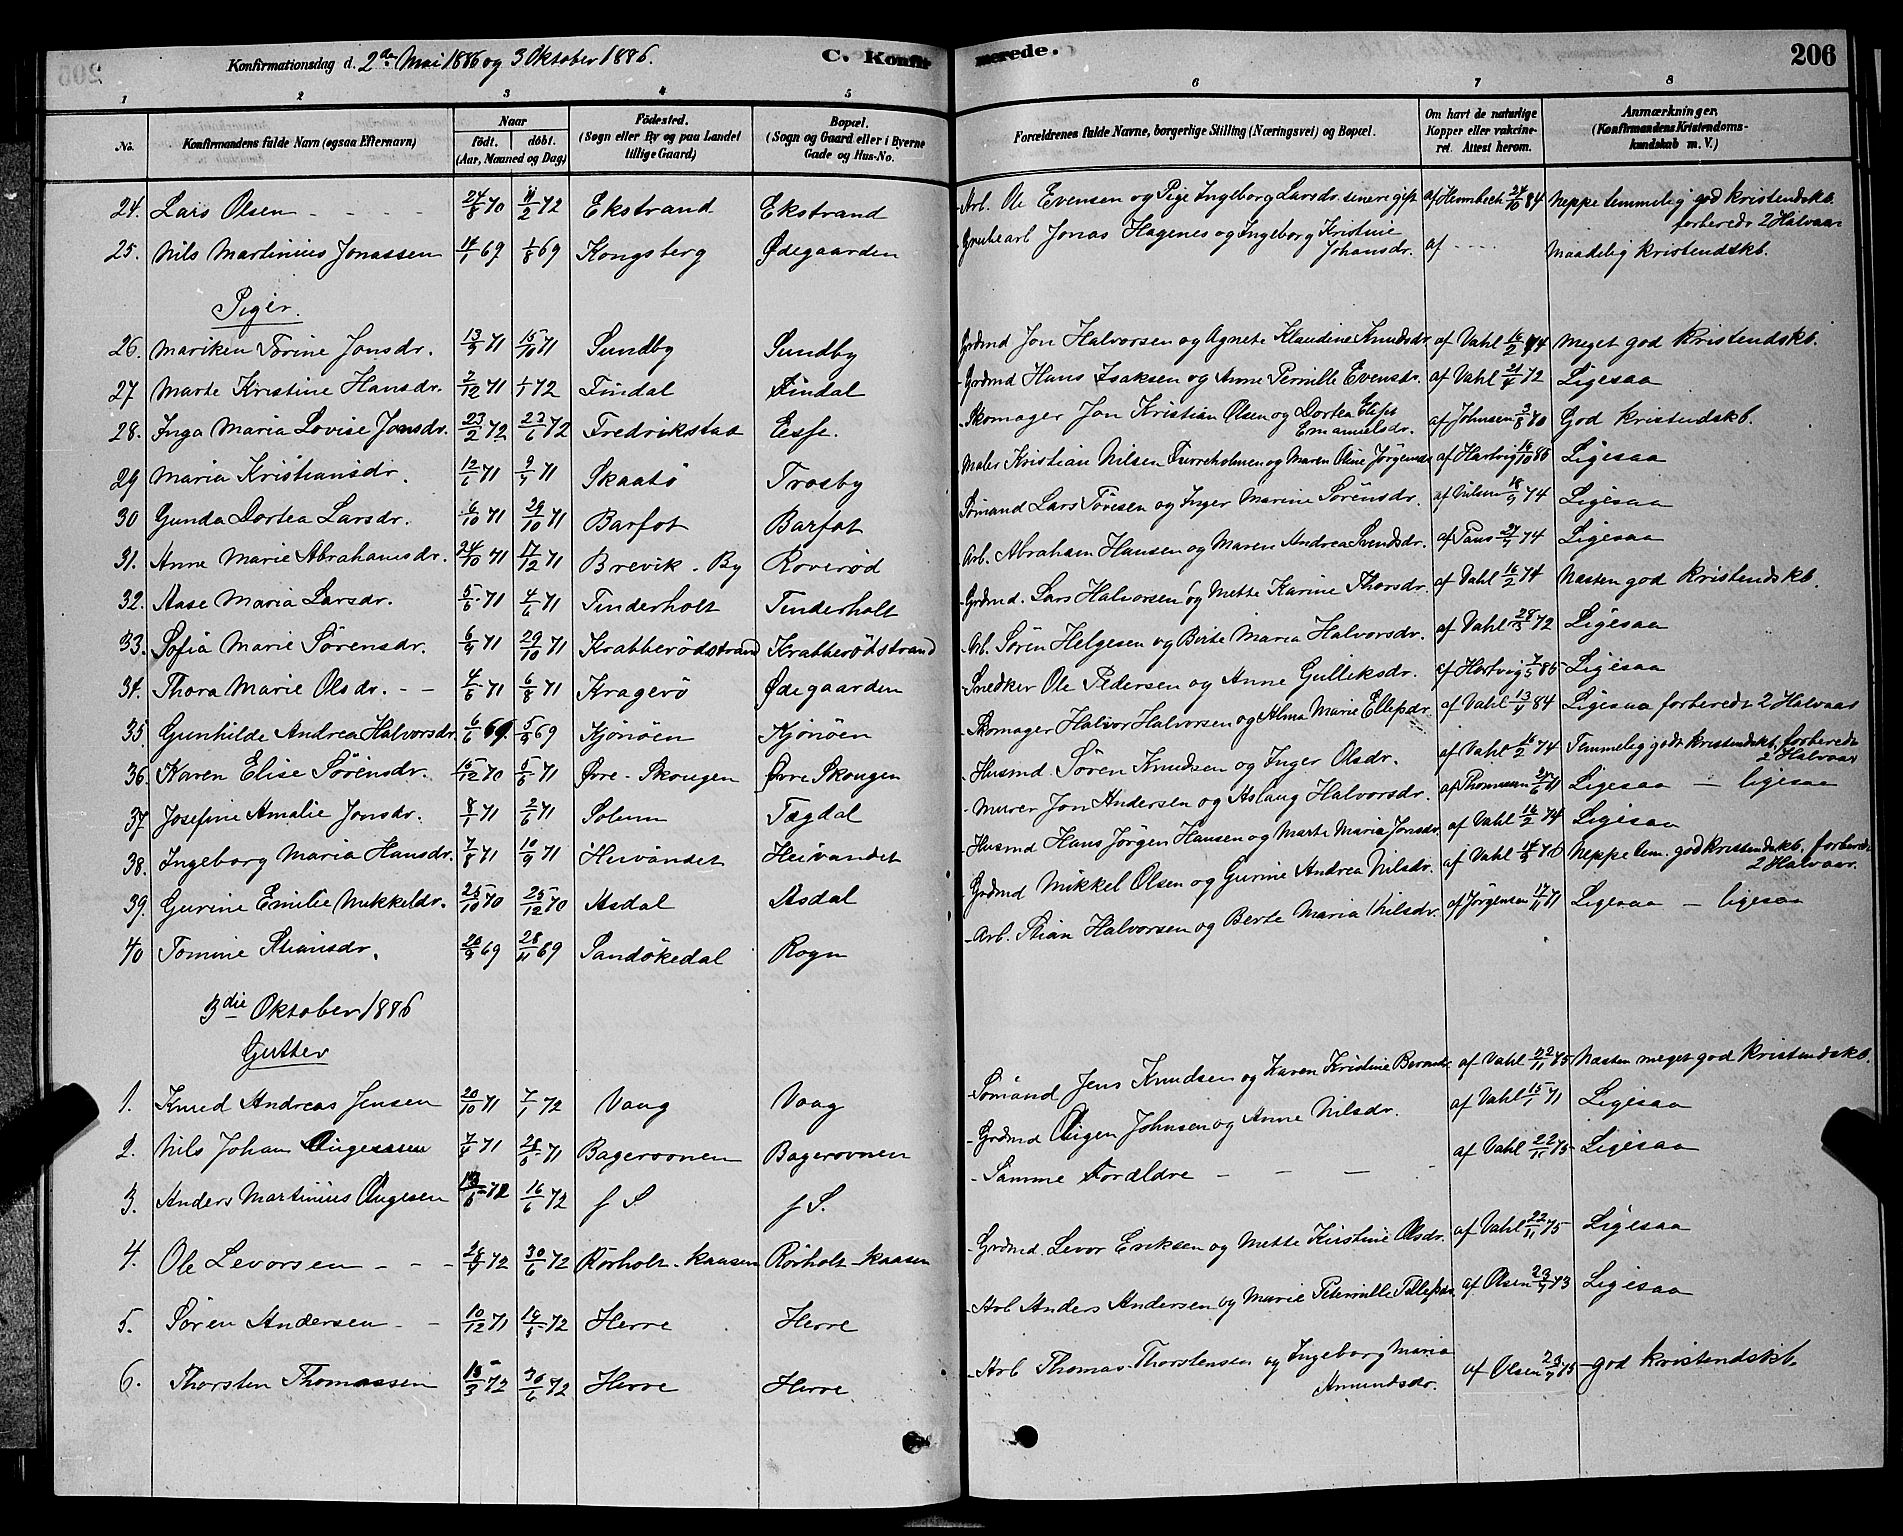 Konfirmationsdag d. 2den Mai 1886 og 3 Oktober 1886. C. Konfirmerede. 206
1 2 3 4 5 6 7 8
No. Konfirmandens fulde Navn (ogsaa Efternavn) Naar født. døbt. (Aar, Maaned og Dag) Fødested. (Sogn eller By og paa Landet tillige Gaard) Bopæl. (Sogn og Gaard eller i Byerne Gade og Hus-No. Forældrenes fulde Navne, borgerlige Stilling (Næringsvei) og Bopæl. Om havt de naturlige Kopper eller vakcineret. Attest herom. Anmærkninger. (Konfirmandens Kristendomskundskab m. V.)
24. Lars Olsen 24/8 70 11/2 72 Ekstrand Ekstrand Arb. Ole Evensen og Pige Ingeborg Larsdr. senere gift 24/10 84 Neppe temmelig god kristendskb. forberedt 2 Halvaar
25. Nils Martinius Jonassen 14/1 69 1/8 69 Kongsberg Ødegaarden Grubearb Jonas Hagenes og Ingeborg Kristine Johansdr. af Maadelig kristendskb.
Piger.
26. Mariken Torine Jonsdr. 13/9 71 15/10 71 Sundby Sundby Grdmd Jon Halvorsen og Agnete Klaudine Knudsdr af Vahl 16/2 74 Meget god kristendskb.
27 Marte Kirstine Hansdr. 2/12 71 1/1 72 Findal Findal Grdmd Hans Isaksen og Anne Pernille Evensdr. af Vahl 21/4 72 Ligesaa
28. Inga Maria Lovise Jonsdr. 23/2 72 23/6 72 Fredrikstad Eesfj. Skomager Jon Kristian Olsen og Dortea Emanuelsdr. af Johnsen 3/8 80 God kristendskb.
29 Maria Kristiansdr. 12/6 71 9/7 71 Skaatö Trosby Maler Kristian Nilsen Furreholmen og Maren Oline Jörgensdr af Hartvig 16/10 85 Ligesaa
30 Gunda Dortea Larsdr. 6/10 71 29/10 71 Barfot Barfot Sömand Lars Töresen og Inger Marine Sörensdr. 18/9 74 Ligesaa
31. Anne Marie Abrahamsdr. 24/10 71 17/12 71 Brevik. By Roveröd Arb. Abraham Hansen og Maren Andrea Svendsdr. af Paus 21/7 74 Ligesaa
32. Aase Maria Larsdr. 5/5 71 4/6 71 Tinderholt Tinderholt Grdmd. Lars Halvorsen og Mette Karine Thorsdr. af Vahl 16/2 74 Næsten god kristendskb.
33. Sofia Marie Sörensdr. 6/9 71 29/10 71 Krabberödstrand Krabberödstrand Arb. Sören Helgesen og Berte Maria Halvorsdr. af Vahl 28/5 72 Ligesaa
34. Thora Marie Olsdr. 4/6 71 6/8 71 Kragerö Ødegaarden Snedker Ole Pedersen og Anne Gulleksdr. af Hartvig 7/5 85 Ligesaa
35. Gunhilde Andrea Halvorsdr. 6/6 69. 5/9 69 Kjönöen Kjönöen Skomager Halvor Halvorsen og Alma Marie Ellefsdr. af Vahl 13/4 84 Ligesaa forberedt 2 Halvaar
36. Karen Elise Sörensdr. 15/12 70 5/3 71 Øvre-Skougen Øvre Skougen Husmd Sören Knudsen og Inger Olsdr. af Vahl 16/2 74 Temmelig godt kristendskb. forberedt 2 Halvaar
37 Josefine Amalie Jonsdr. 8/1 71 2/6 71 Solum Tægdal Murer Jon Andersen og Aslaug Halvorsdr. af Thomsen 21/6 71 Ligesaa — ligesaa
38. Ingeborg Maria Hansdr. 7/8 71 10/9 71 Heivandet Heivandet Husmd Hans Jörgen Hansen og Marte Maria Jonsdr. af Vahl 16/2 74 Ligesaa
39. Gurine Emilie Mikkeldr. 25/10 70 25/12 70 Asdal Asdal Grdmd Mikkel Olsen og Gurine Andrea Nilsdr. af Vahl Neppe tem. god kristendskb. forberedt 2 Halvaar.
40 Tomine Stiansdr. 26/9 69 28/11 69 Sandökedal Rogn Arb. Stian Halvorsen og Berte Maria Nilsdr. af Jörgensen 17/11 71 Ligesaa — ligesaa
3die Oktober 1886
Gutter
1. Knud Andreas Jensen 20/10 71 7/1 72 Vaag Vaag Sömand Jens Knudsen og Karen Kristine af Vahl 22/11 75 Næsten meget god kristendskb.
2. Nils Johan Augensen 7/4 71 28/5 71 Bagerovnen Bagerovnen Grdmd Augen Johnsen og Anne Nilsdr. af Vahl 15/1 71 Ligesaa
3. Anders Martinius Augesen 72 16/6 72 f S. f S. Samme Foræeldre — — — af Vahl 22/11 75 Ligesaa
4. Ole Levorsen 28/4 72 30/6 72 Rörholt-Kaasen Rörholt-Kaasen Grdmd. Levor Eriksen og Mette Kirstine Olsdr. af Vahl 22/11 75 Ligesaa
5. Sören Andersen 10/12 71 19/5 72 Herre Herre Arb Anders Andersen og Marie Peternille Tellefsdr. af Olsen 23/7 73 Ligesaa
6. Thorsten Thomassen 15/3 72 30/6 72 Herre Herre Arb Thomas Thorstensen og Ingeborg Maria Amundsdr. af Olsen 23/7 75 god kristendskb.